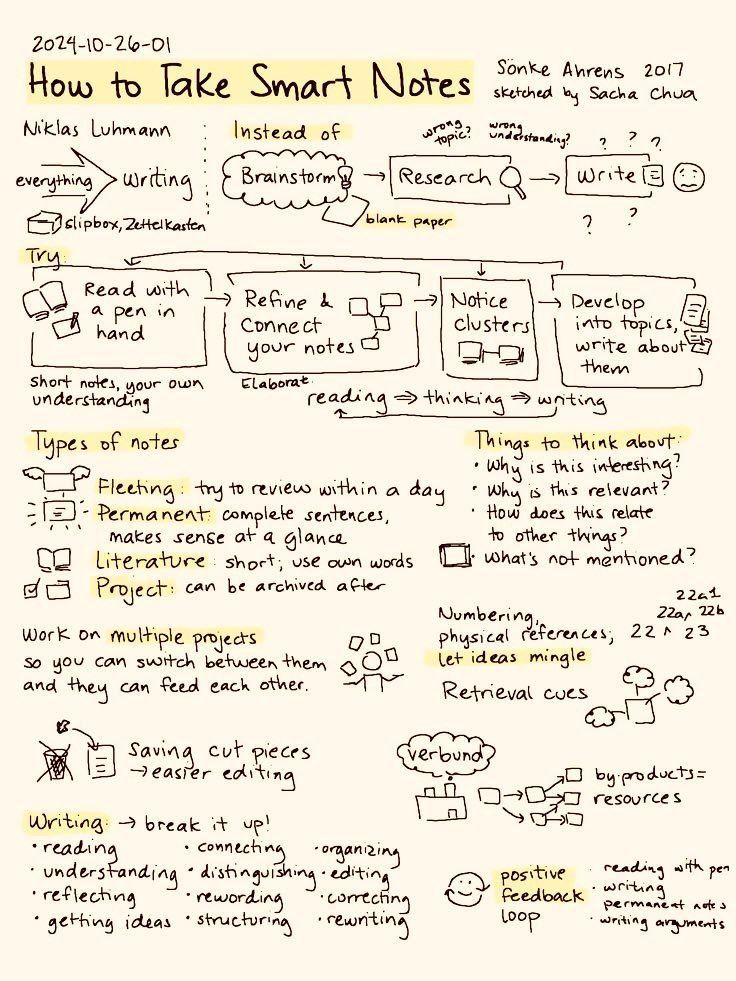 2024-10-26-01
How to Take Smart Notes
Sönke Ahrens 2017
sketched by Sacha Chua
Niklas Luhmann
everything
writing
slipbox, Zettelkasten
Instead of
Brainstorm
blank paper
wrong topic?
Research
wrong understanding?
? ? ?
Write
? ?
Try:
Read with
a pen in
hand
short notes, your own
understanding
Refine &
Connect
your notes
Elaborat.
Notice
clusters
Develop
into topics,
write about
them
reading ⇒ thinking ⇒ writing
Types of notes
Fleeting: try to review within a day
Permanent: complete sentences,
makes sense at a glance
Literature: short; use own words
Project: can be archived after
Things to think about:
• Why is this interesting?
• Why is this relevant?
• How does this relate
to other things?
• What's not mentioned?
Work on multiple projects
so you can switch between them
and they can feed each other.
Numbering,
physical references;
let ideas mingle
22a1
22a, 22b
22 ^ 23
Retrieval cues
Saving cut pieces
→ easier editing
verbund
by-products =
resources
Writing: → break it up!
• reading
• understanding
• reflecting
• getting ideas
• connecting
• distinguishing
• rewording
• structuring
• organizing
• editing
• correcting
• rewriting
positive
feedback
loop
• reading with pen
• writing
permanent notes
• writing arguments